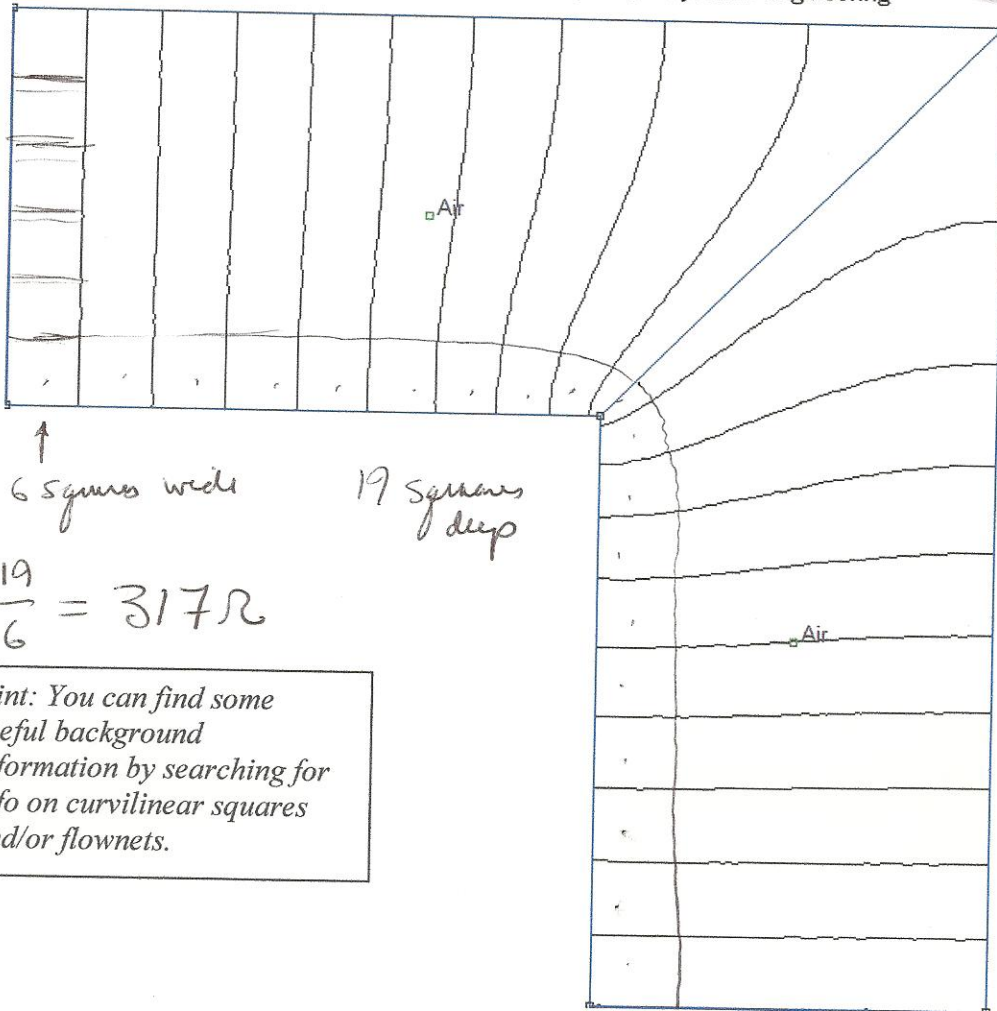 Air
6 squares wide
19 squares
deep
19
6 = 317Ω
Air
int: You can find some
eful background
formation by searching for
fo on curvilinear squares
d/or flownets.